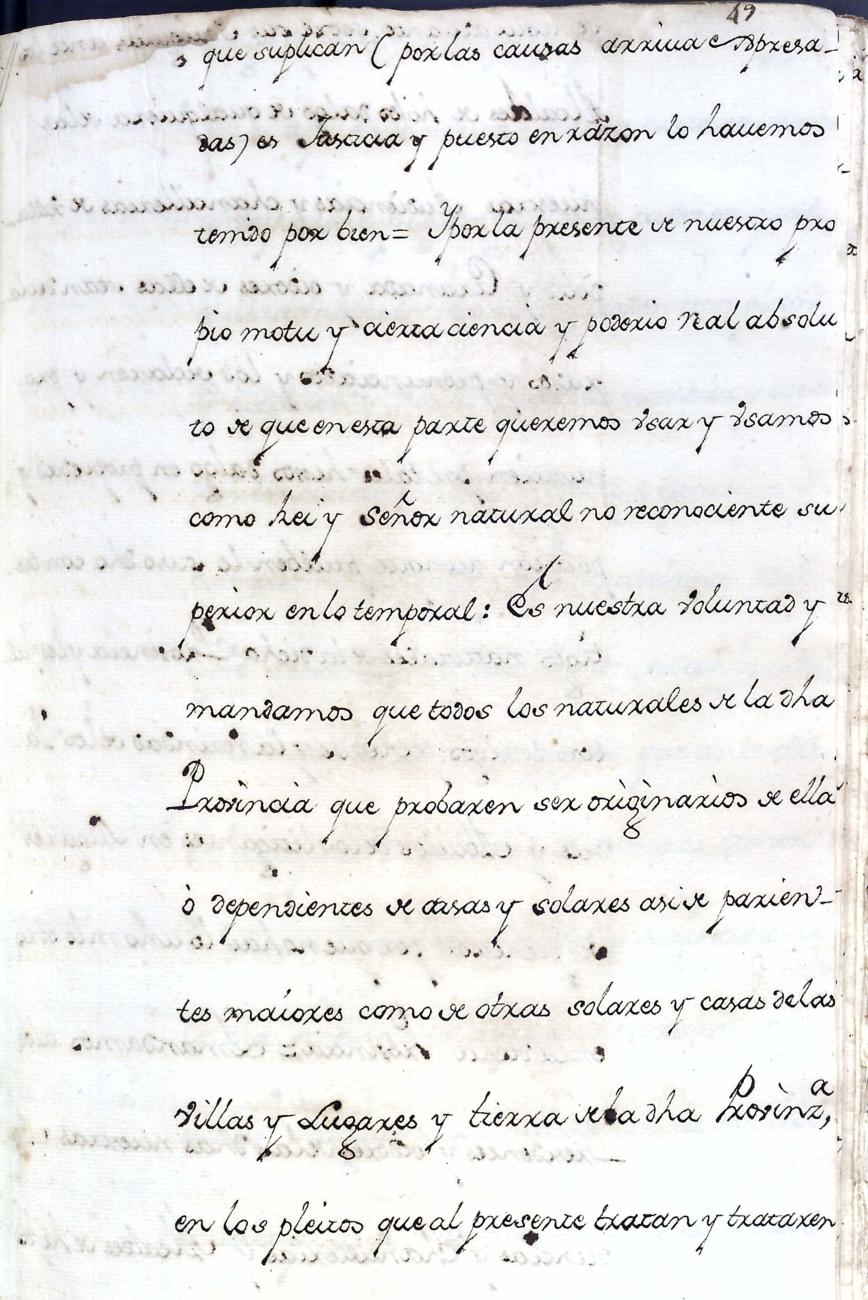 49
que suplican (por las causas arriua expresa-
das) es Justicia y puesto en razon lo hauemos
tenido por bien= Y por la presente de nuestro pro
pio motu y cierta ciencia y poderio real absolu
to de que en esta parte queremos vsar y vsamos
como Rei y Señor natural no reconociente su
perior en lo temporal: Es nuestra voluntad y
mandamos que todos los naturales de la dha
Provincia que probaren ser originarios de ella
ò dependientes de casas y solares asi de parien-
tes maiores como de otras solares y casas de las
villas y Lugares y tierra de la dha Provinza,
en los pleitos que al presente tratan y trataren